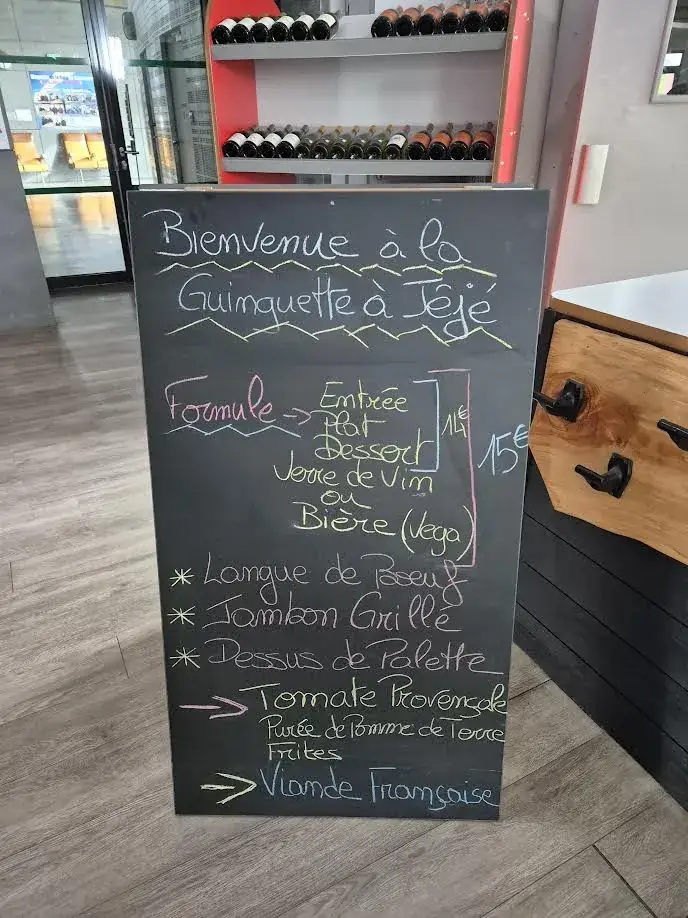 Bienvenue à la
Guinguette à Jéjé
Formule → Entrée
Plat
Dessert
14€
15€
Verre de Vin
ou
Bière (Vega)
* Langue de Boeuf
* Jambon Grillé
* Dessus de Palette
→ Tomate Provençale
Purée de Pomme de Terre
Frites
→ Viande Française